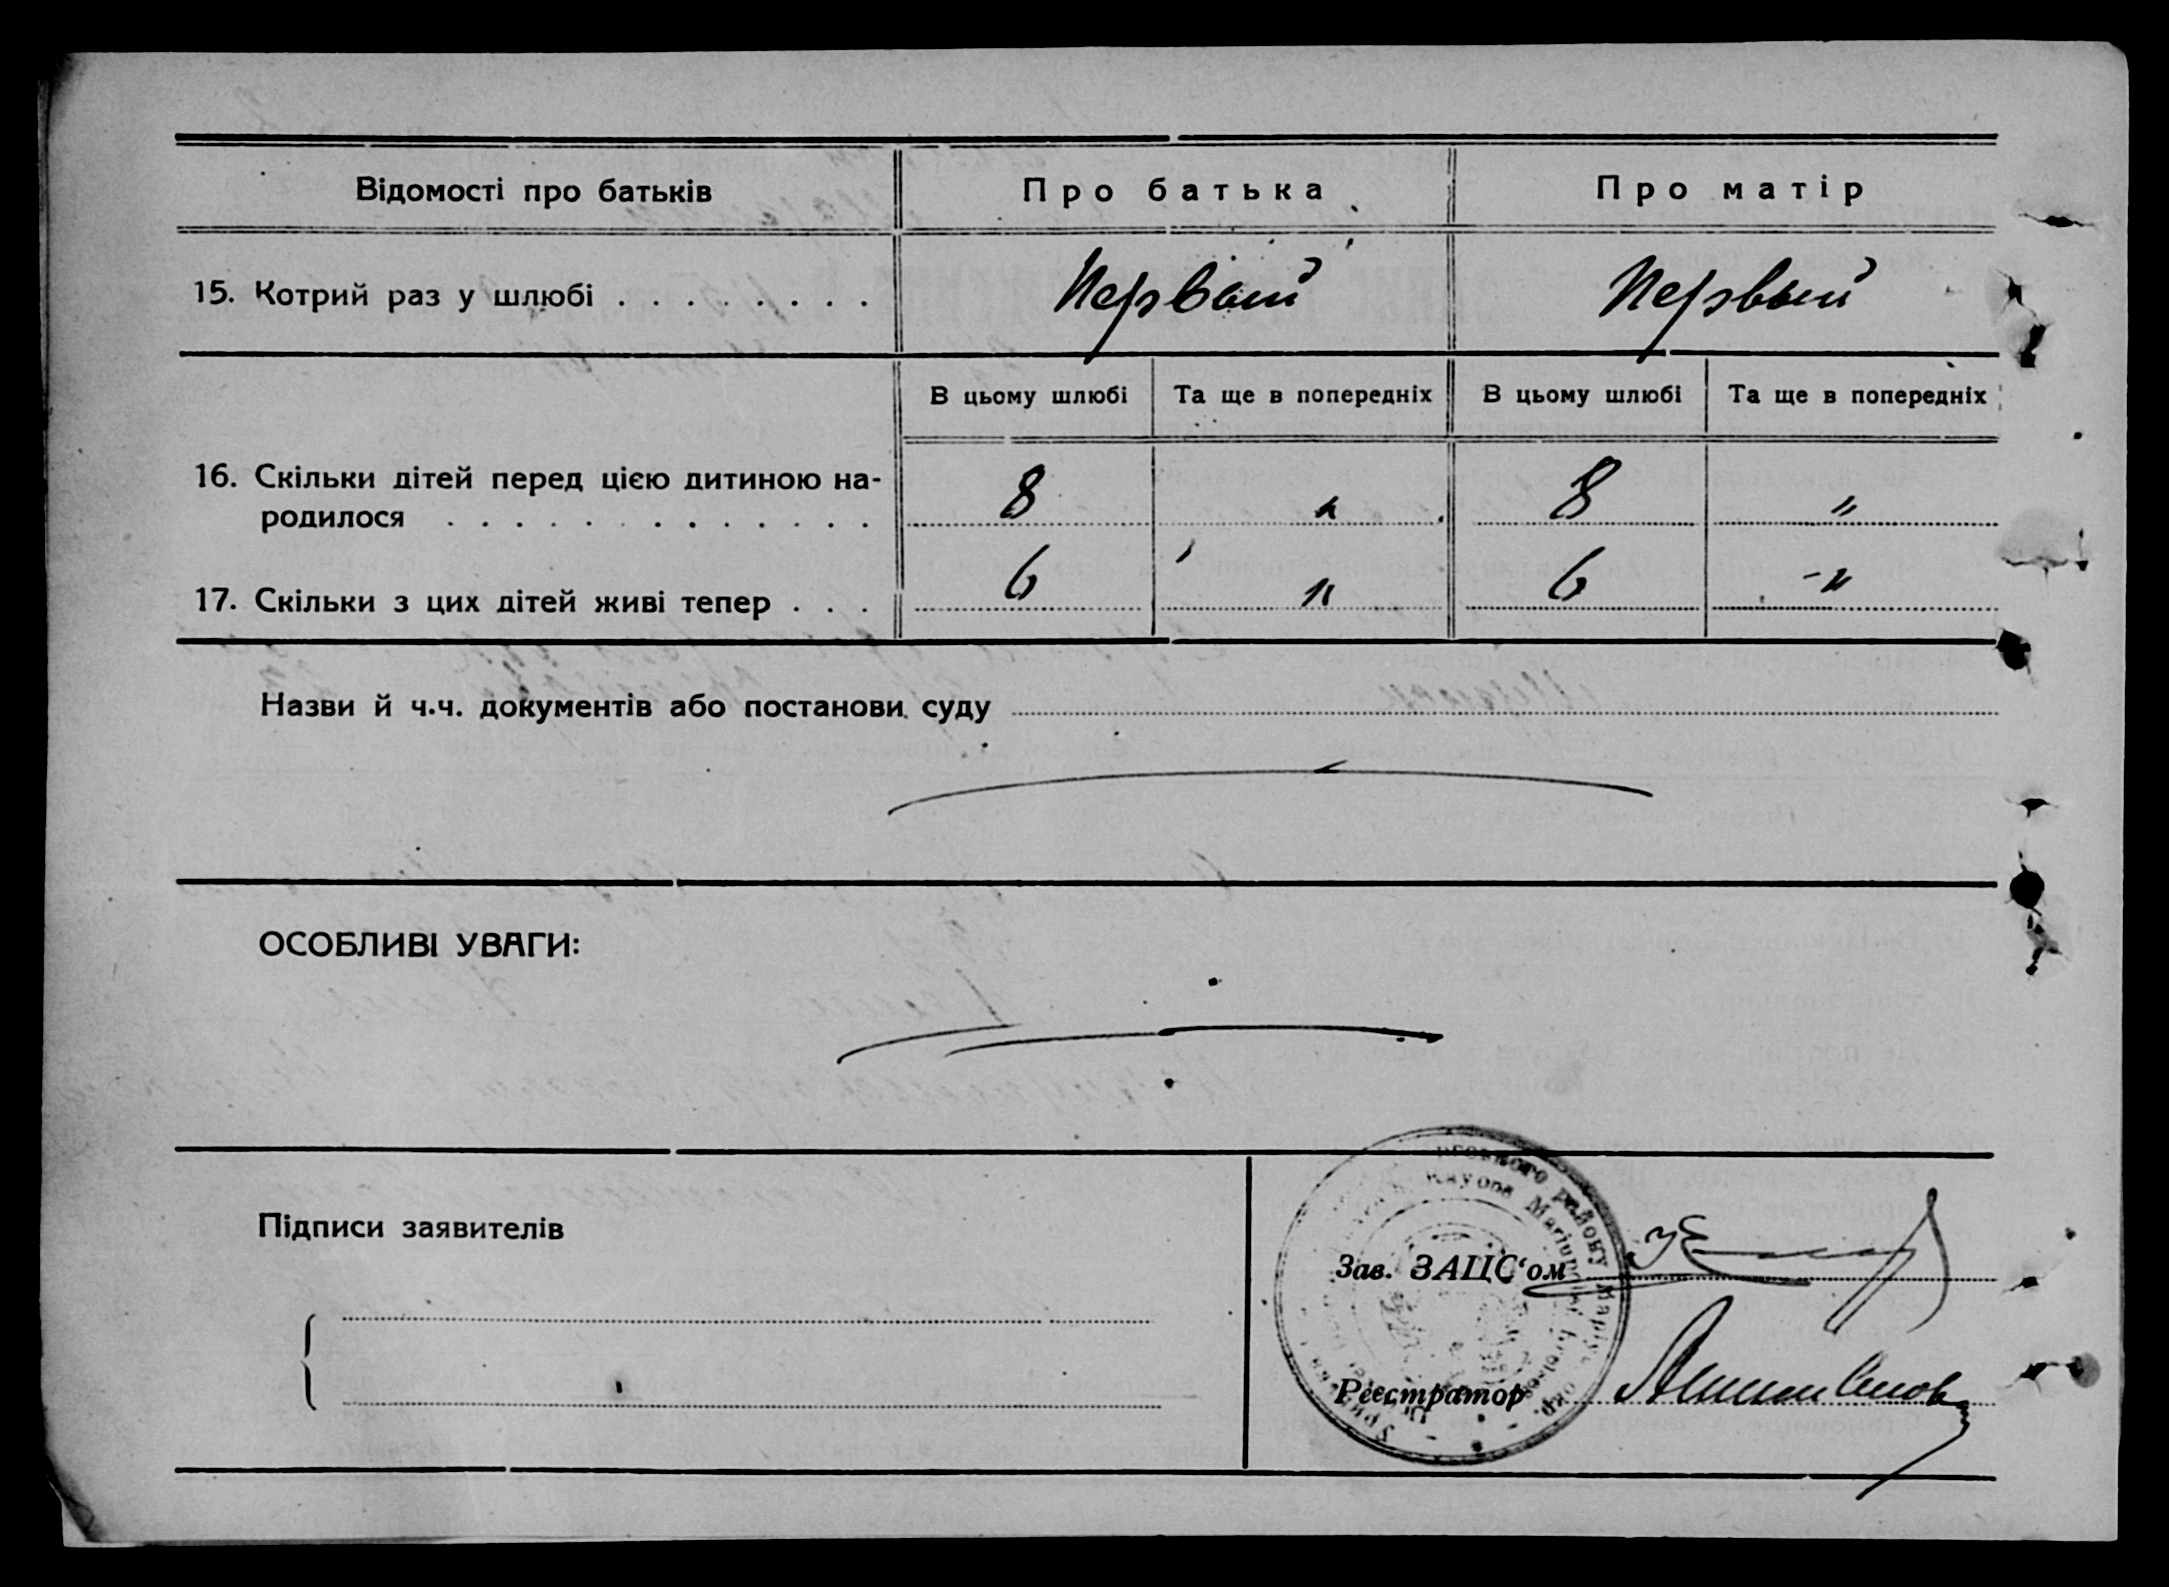 Відомості про батьків Про батька Про матір
15. Котрий раз у шлюбі . . . . . . . . Первый Первый
В цьому шлюбі Та ще в попередніх В цьому шлюбі Та ще в попередніх
16. Скільки дітей перед цією дитиною на-
родилося . . . . . . . . . . . . . 8 " 8 "
17. Скільки з цих дітей живі тепер . . . 6 " 6 -"
Назви й ч.ч. документів або постанови суду
ОСОБЛИВІ УВАГИ:
Підписи заявителів
Зав. ЗАЦС'ом
Реєстратор
району Маріуп. окр.
Rayona Mariupolskoi